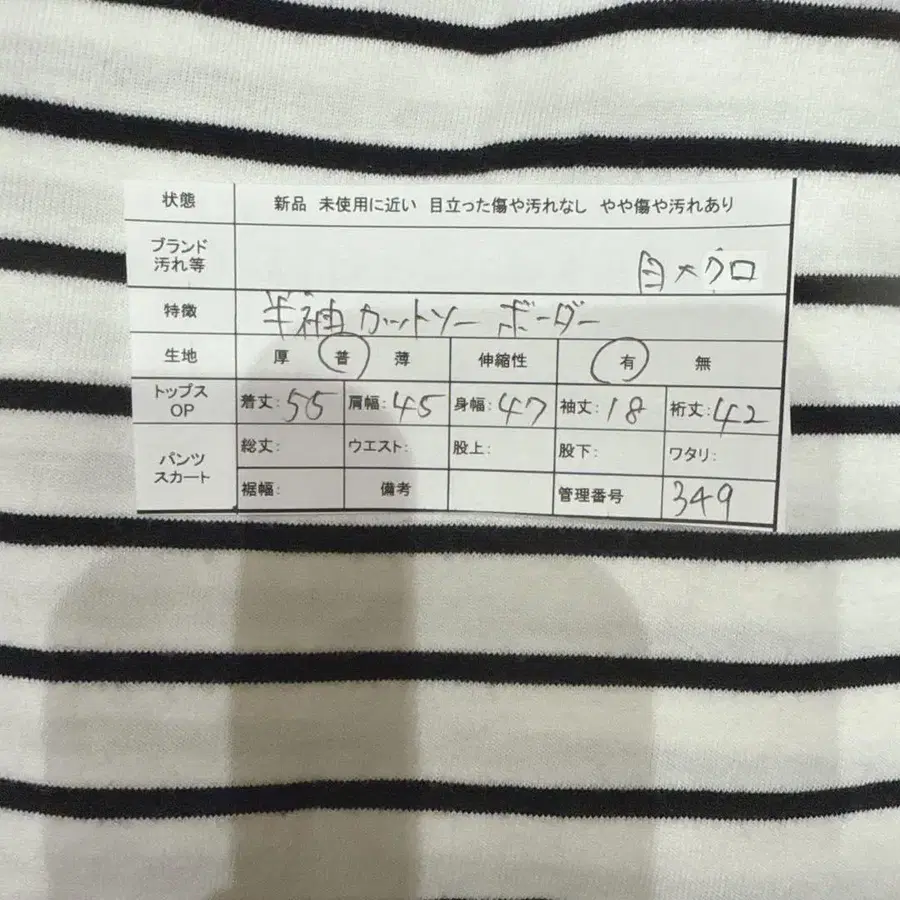 状態 新品 未使用に近い 目立った傷や汚れなし やや傷や汚れあり
ブランド
汚れ等 白×クロ
特徴 半袖カットソー ボーダー
生地 厚 普 薄 伸縮性 有 無
トップス
OP 着丈:55 肩幅:45 身幅:47 袖丈:18 裄丈:42
パンツ
スカート 総丈: ウエスト: 股上: 股下: ワタリ:
裾幅: 備考 管理番号 349